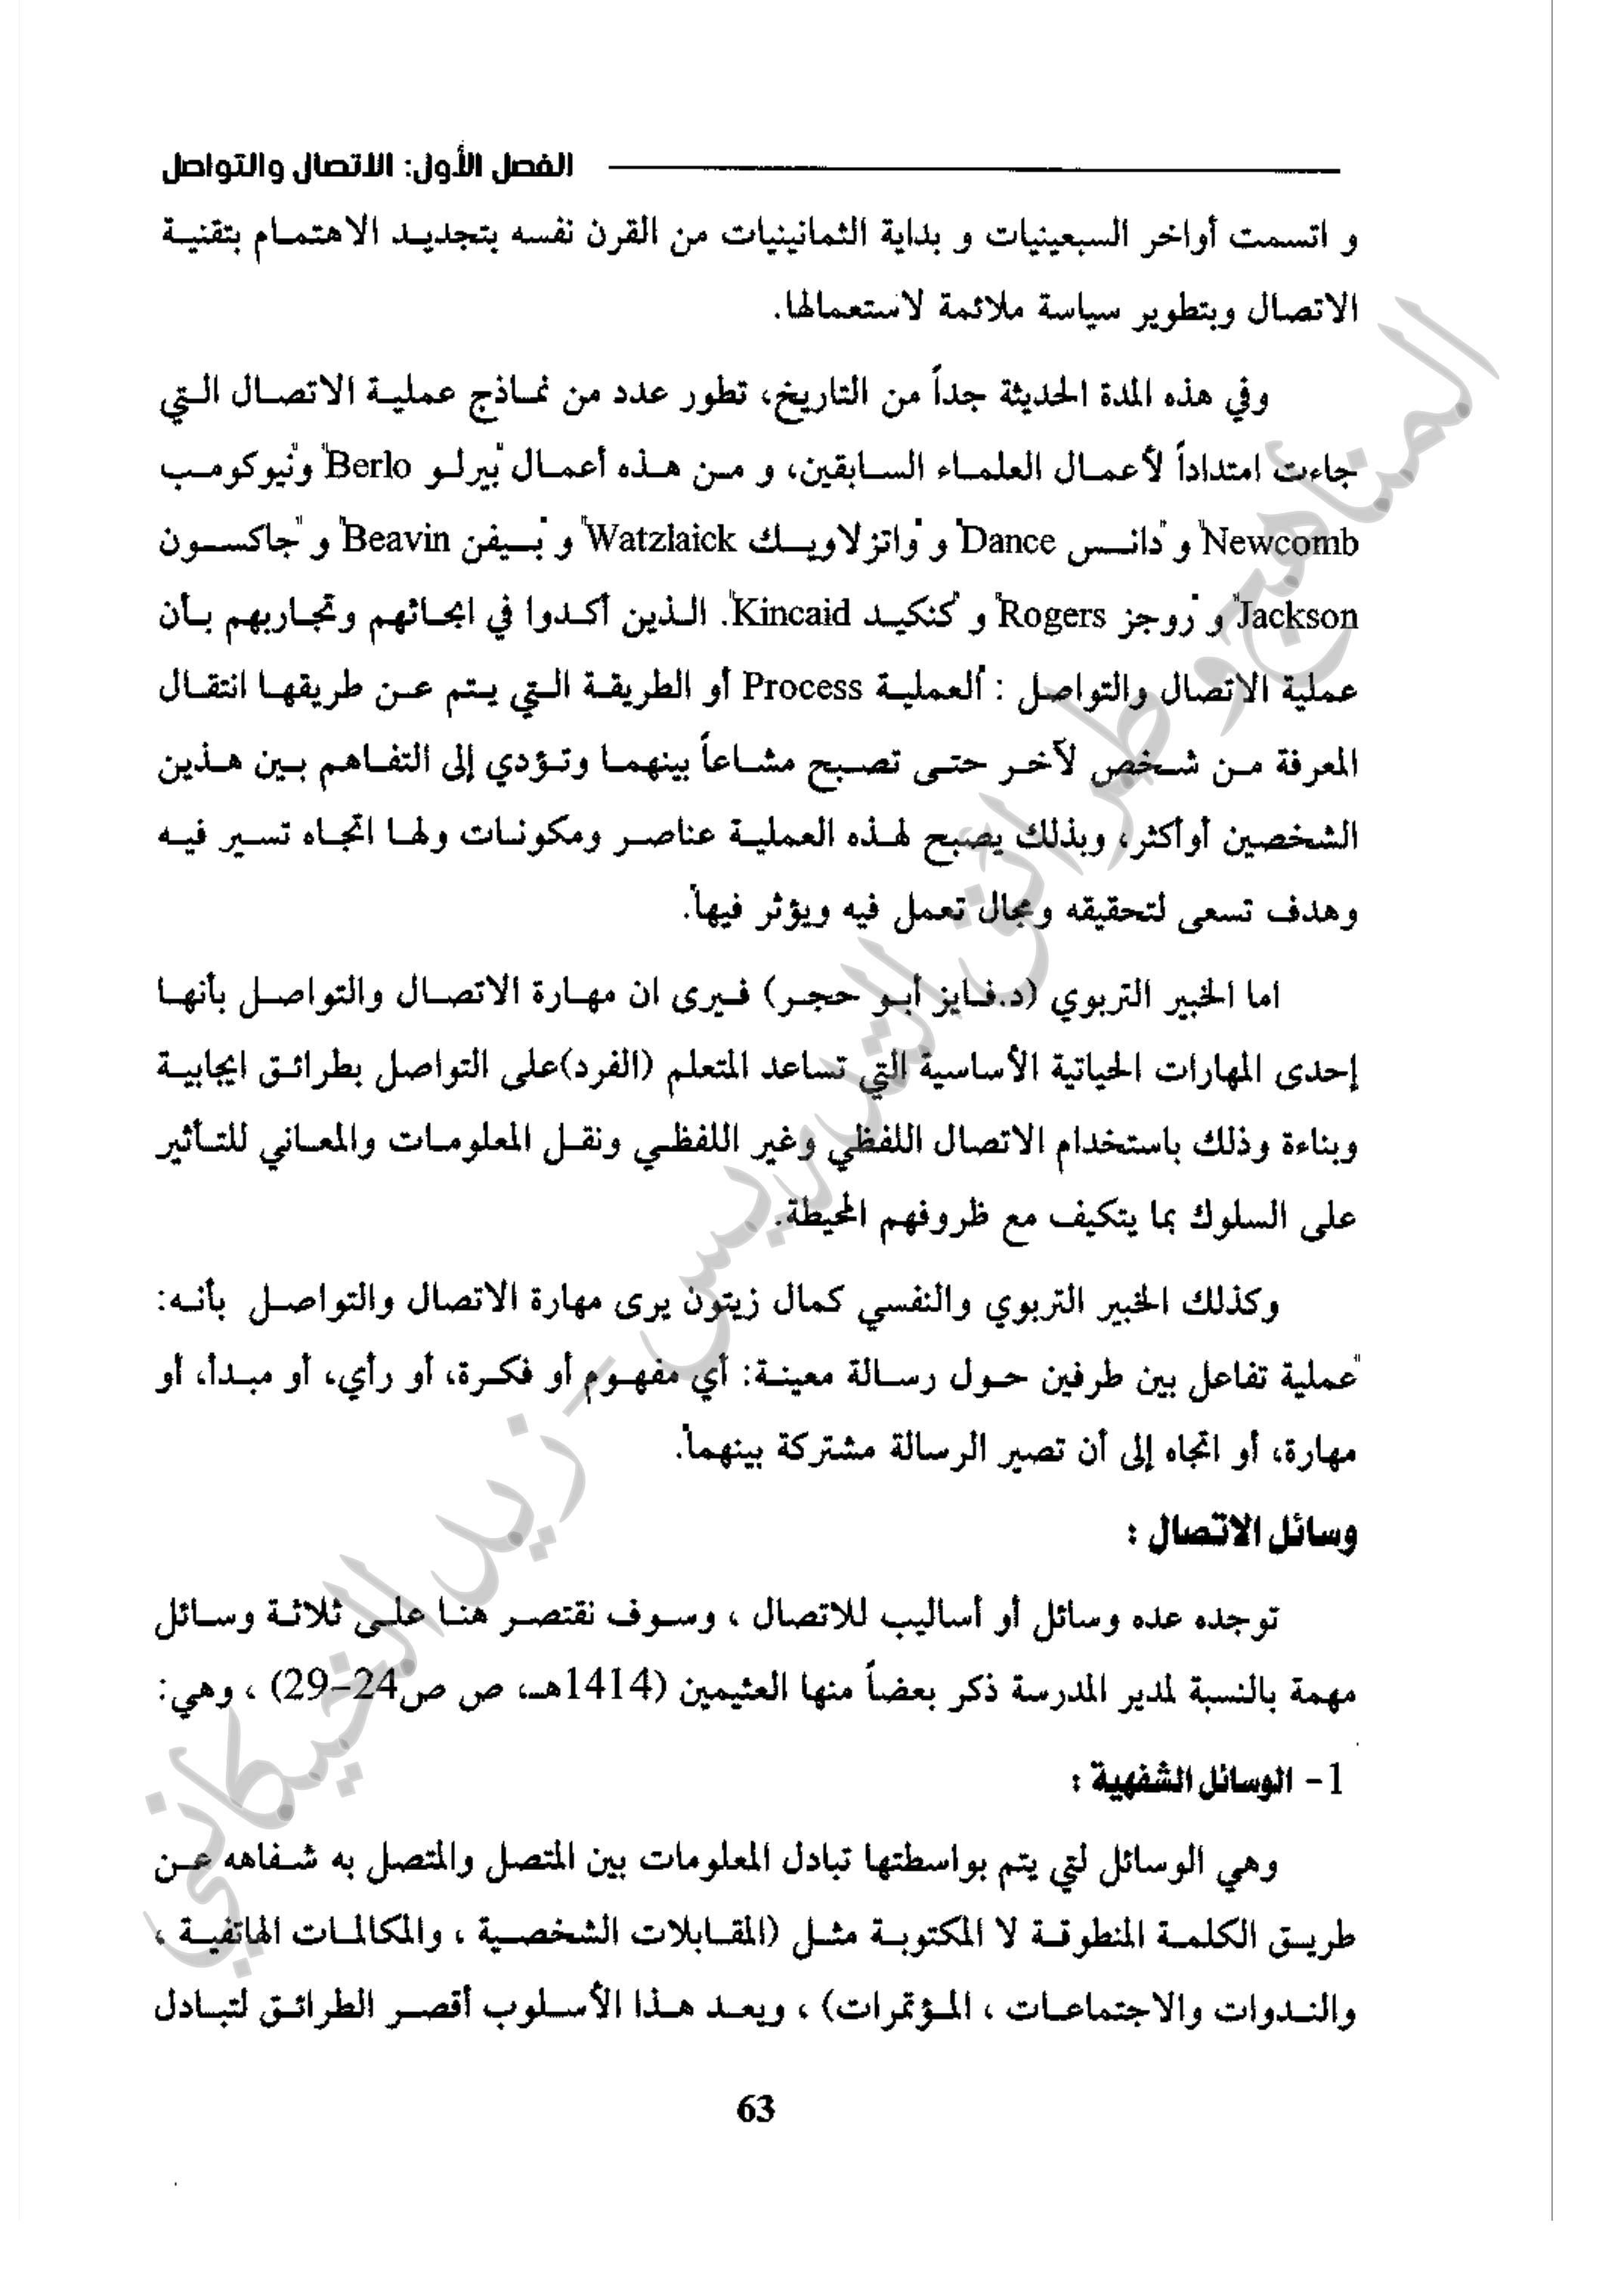 الفصل الأول: الاتصال والتواصل
و اتسمت أواخر السبعينيات و بداية الثمانينيات من القرن نفسه بتجديد الاهتمام بتقنية
الاتصال وبتطوير سياسة ملائمة لاستعمالها.
وفي هذه المدة الحديثة جداً من التاريخ، تطور عدد من نماذج عملية الاتصال التي
جاءت امتداداً لأعمال العلماء السابقين، و من هذه أعمال "بيرلو Berlo" و"نيوكومب
Newcomb" و"دانس Dance" و "واتزلاويك Watzlaick" و "بيفن Beavin" و "جاكسون
Jackson" و "روجز Rogers" و "كنكيد Kincaid". الذين أكدوا في ابحاثهم وتجاربهم بأن
عملية الاتصال والتواصل : "العملية Process أو الطريقة التي يتم عن طريقها انتقال
المعرفة من شخص لآخر حتى تصبح مشاعاً بينهما وتؤدي إلى التفاهم بين هذين
الشخصين أوأكثر، وبذلك يصبح لهذه العملية عناصر ومكونات ولها اتجاه تسير فيه
وهدف تسعى لتحقيقه ومجال تعمل فيه ويؤثر فيها".
اما الخبير التربوي (د.فايز أبو حجر) فيرى ان مهارة الاتصال والتواصل بأنها
إحدى المهارات الحياتية الأساسية التي تساعد المتعلم (الفرد)على التواصل بطرائق ايجابية
وبناءة وذلك باستخدام الاتصال اللفظي وغير اللفظي ونقل المعلومات والمعاني للتأثير
على السلوك بما يتكيف مع ظروفهم المحيطة.
وكذلك الخبير التربوي والنفسي كمال زيتون يرى مهارة الاتصال والتواصل بأنه:
"عملية تفاعل بين طرفين حول رسالة معينة: أي مفهوم أو فكرة، أو رأي، أو مبدأ، أو
مهارة، أو اتجاه إلى أن تصير الرسالة مشتركة بينهما".
وسائل الاتصال :
توجده عده وسائل أو أساليب للاتصال ، وسوف نقتصر هنا على ثلاثة وسائل
مهمة بالنسبة لمدير المدرسة ذكر بعضاً منها العثيمين (1414هـ، ص ص24-29) ، وهي:
1- الوسائل الشفهية :
وهي الوسائل لتي يتم بواسطتها تبادل المعلومات بين المتصل والمتصل به شفاهه عن
طريق الكلمة المنطوقة لا المكتوبة مثل (المقابلات الشخصية ، والمكالمات الهاتفية ،
والندوات والاجتماعات ، المؤتمرات) ، ويعد هذا الأسلوب أقصر الطرائق لتبادل
63
المناهج وطرائق التدريس - زيد الخيكاني